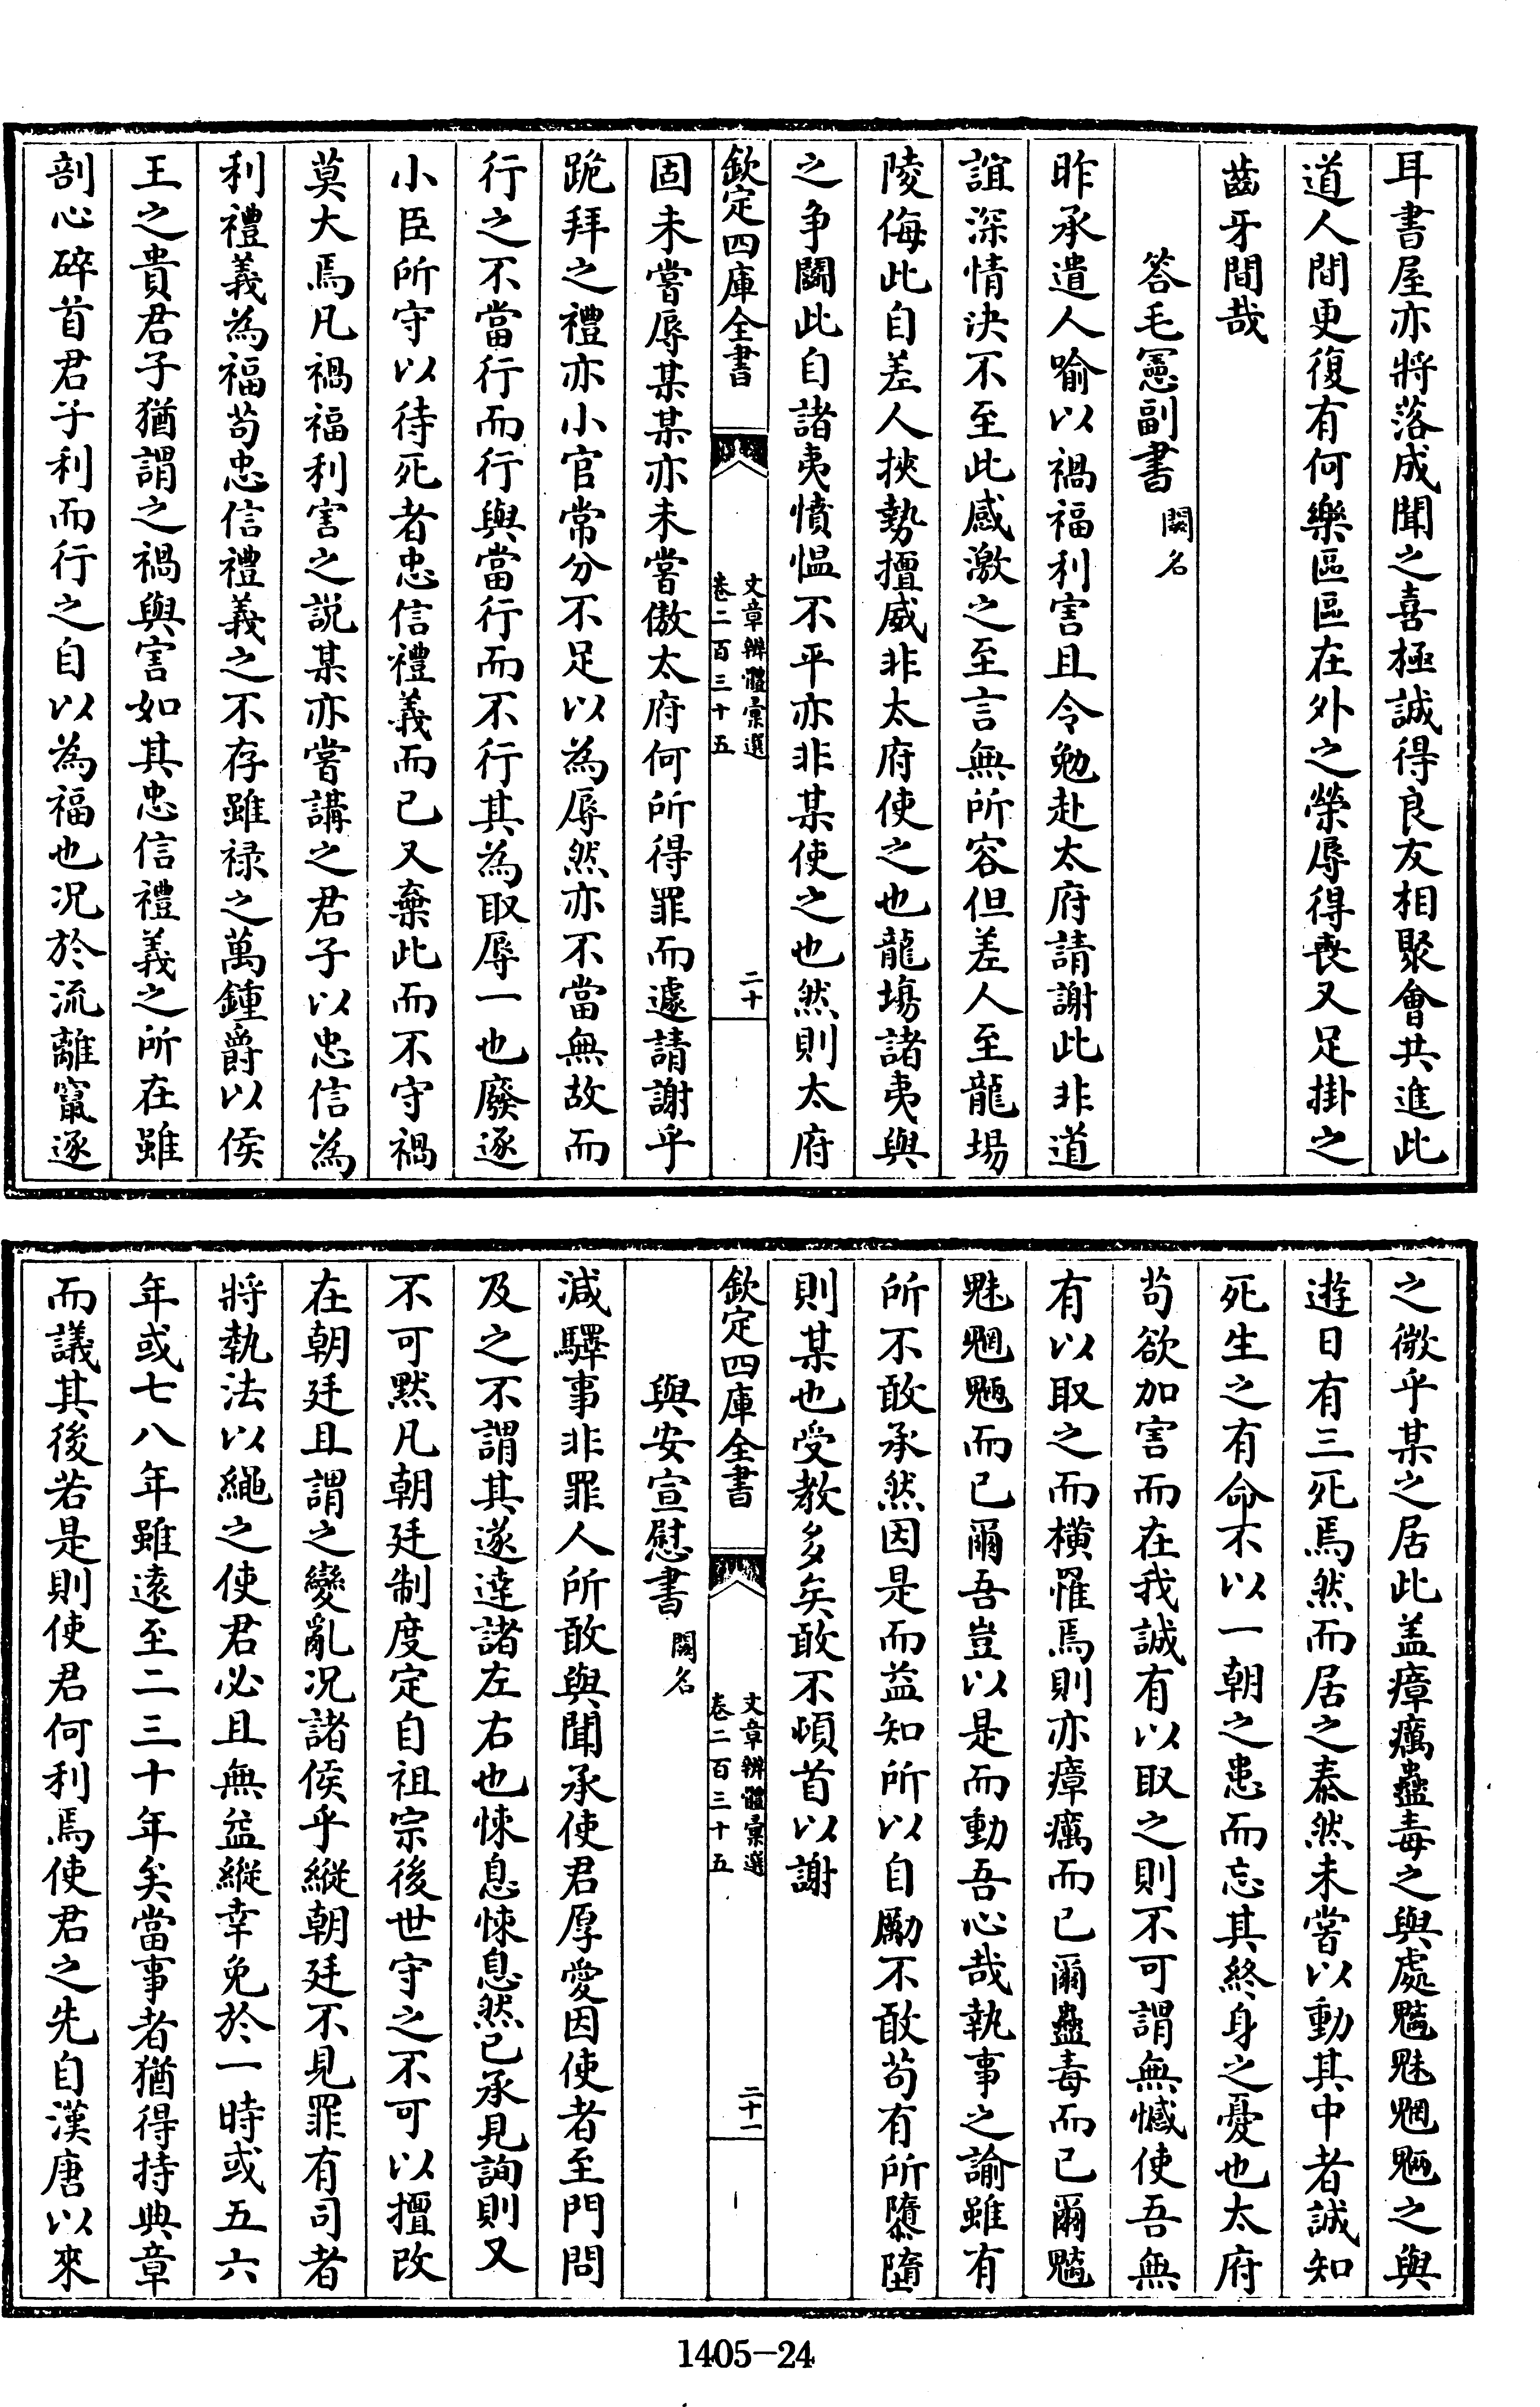 耳書屋亦將落成聞之喜極誠得良友相聚會共進此
道人間更復有何樂區區在外之榮辱得喪又足掛之
齒牙間哉
答毛憲副書 闕名
昨承遣人喻以禍福利害且令勉赴太府請謝此非道
誼深情決不至此感激之至言無所容但差人至龍場
陵侮此自差人挾勢擅威非太府使之也龍場諸夷與
之爭鬭此自諸夷憤愠不平亦非某使之也然則太府
欽定四庫全書
文章辨體彙選
卷二百三十五
二十
固未嘗辱某某亦未嘗傲太府何所得罪而遽請謝乎
跪拜之禮亦小官常分不足以為辱然亦不當無故而
行之不當行而行與當行而不行其為取辱一也廢逐
小臣所守以待死者忠信禮義而已又棄此而不守禍
莫大焉凡禍福利害之説某亦嘗講之君子以忠信為
利禮義為福苟忠信禮義之不存雖禄之萬鍾爵以侯
王之貴君子猶謂之禍與害如其忠信禮義之所在雖
剖心碎首君子利而行之自以為福也况於流離竄逐
之微乎某之居此盖瘴癘蠱毒之與處魑魅魍魎之與
遊日有三死焉然而居之泰然未嘗以動其中者誠知
死生之有命不以一朝之患而忘其終身之憂也太府
苟欲加害而在我誠有以取之則不可謂無憾使吾無
有以取之而横罹焉則亦瘴癘而已爾蠱毒而已爾魑
魅魍魎而已爾吾豈以是而動吾心哉執事之諭雖有
所不敢承然因是而益知所以自勵不敢苟有所隳墮
則某也受教多矣敢不頓首以謝
欽定四庫全書
文章辨體彙選
卷二百三十五
二十一
與安宣慰書 闕名
減驛事非罪人所敢與聞承使君厚愛因使者至門問
及之不謂其遂達諸左右也悚息悚息然已承見詢則又
不可默凡朝廷制度定自祖宗後世守之不可以擅改
在朝廷且謂之變亂况諸侯乎縱朝廷不見罪有司者
將執法以繩之使君必且無益縱幸免於一時或五六
年或七八年雖遠至二三十年矣當事者猶得持典章
而議其後若是則使君何利焉使君之先自漢唐以來
1405-24